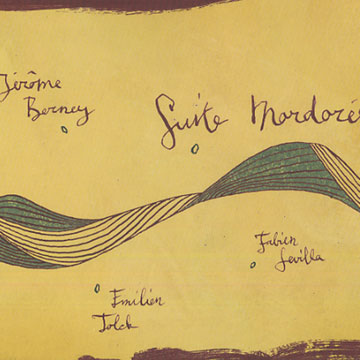 Jérôme
Berney
Suite Mordore
Fabien
Sevilla
Emilien
Tolck